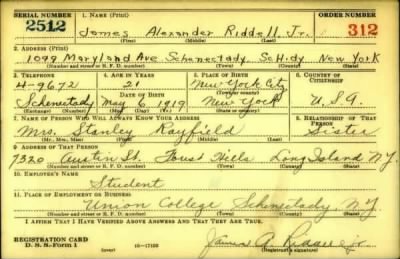 SERIAL NUMBER 1. NAME (Print) ORDER NUMBER
2512 James Alexander Riddell Jr. 312
(First) (Middle) (Last)
2. ADDRESS (Print)
1099 Maryland Ave Schenectady, Sch'dy New York
(Number and street or R. F. D. number) (Town) (County) (State)
3. TELEPHONE 4. AGE IN YEARS 5. PLACE OF BIRTH 6. COUNTRY OF CITIZENSHIP
4-9672 21 New York City
DATE OF BIRTH
Schenectady May 6 1919 New York U.S.A.
(Exchange) (Mo.) (Day) (Yr.) (State or country)
7. NAME OF PERSON WHO WILL ALWAYS KNOW YOUR ADDRESS 8. RELATIONSHIP OF THAT PERSON
Mrs. Stanley Rayfield Sister
(Mr., Mrs., Miss) (First) (Middle) (Last)
9. ADDRESS OF THAT PERSON
7320 Austin St. Forest Hills Long Island N.Y.
(Number and street or R. F. D. number) (Town) (County) (State)
10. EMPLOYER'S NAME
Student
11. PLACE OF EMPLOYMENT OR BUSINESS
Union College Schenectady N.Y.
(Number and street or R. F. D. number) (Town) (County) (State)
I AFFIRM THAT I HAVE VERIFIED ABOVE ANSWERS AND THAT THEY ARE TRUE.
REGISTRATION CARD
D. S. S. Form 1 16-17105 James A. Riddell Jr.